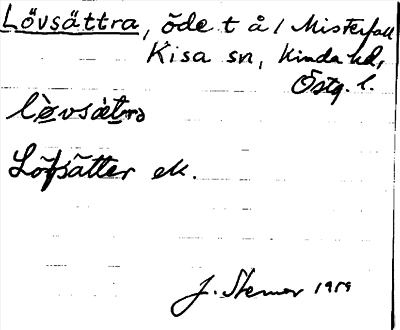 Lövsättra, öde t å / Misterfall
Kisa sn, Kinda hd,
Östg. l.
lòvsætra
Löfsätter ek.
J. Stemer 1919